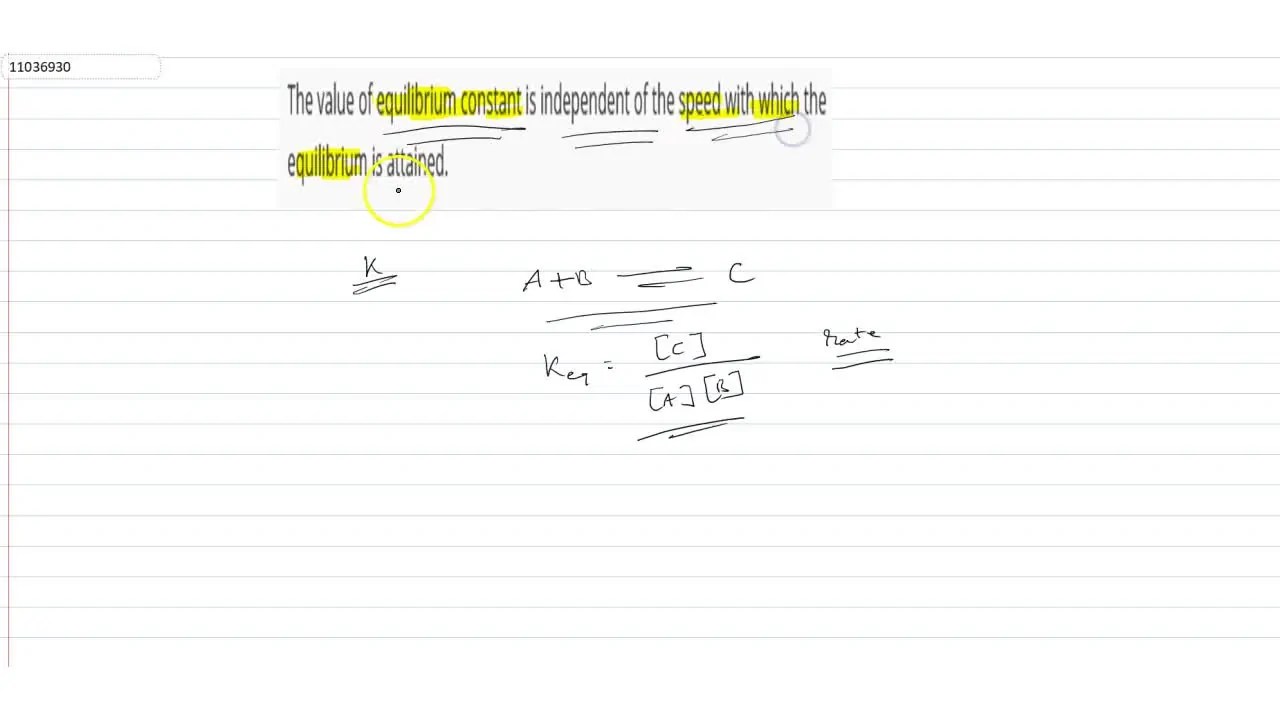 11036930
The value of equilibrium constant is independent of the speed with which the
equilibrium is attained.
K
A + B ⇌ C
Keq = [C] / [A] [B]
rate